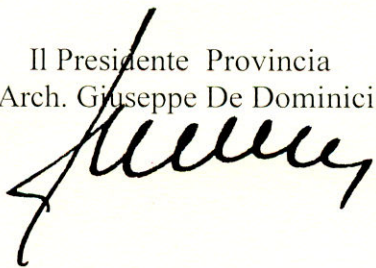 Il Presidente Provincia
Arch. Giuseppe De Dominici